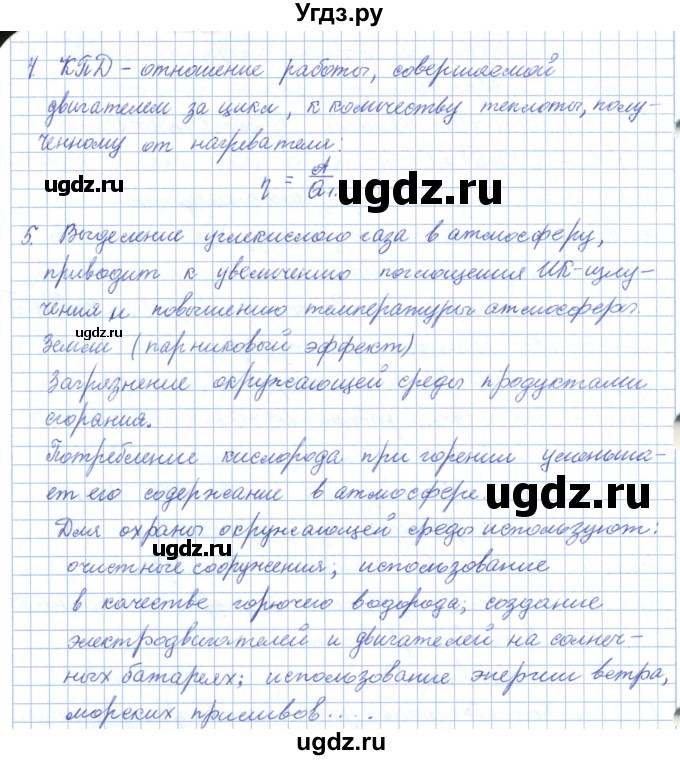 Угдз.ру
4. КПД – отношение работы, совершаемой
двигателем за цикл, к количеству теплоты, полу-
ченному от нагревателя:
η = A/Q₁.
ugdz.ru
ugdz.ru
5. Выделение углекислого газа в атмосферу,
приводит к увеличению поглощения ИК-излу-
чения и повышению температуры атмосферы
ugdz.ru
Земли (парниковый эффект)
Загрязнение окружающей среды продуктами
сгорания.
Потребление кислорода при горении уменьша-
ет его содержание в атмосфере.
ugdz.ru
Для охраны окружающей среды используют:
ugdz.ru
очистные сооружения; использование
в качестве горючего водорода; создание
электродвигателей и двигателей на солнеч-
ных батареях; использование энергии ветра,
морских приливов.....
ugdz.ru